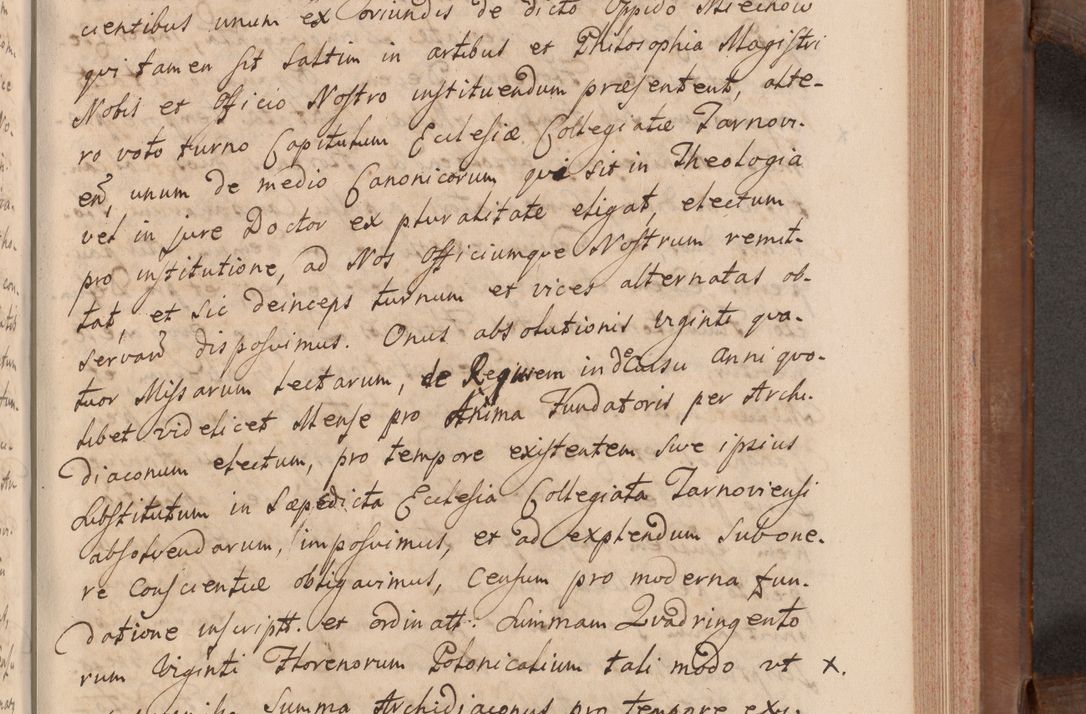 cientibus unum ex oriundis de dicto Oppido Miechow
qvi tamen sit saltim in artibus et Philosophia Magistri
Nobis et Officio Nostro instituendum præsentent, alte-
ro voto turno Capitulum Ecclesiæ Collegiatæ Tarnovi-
en̄, unum de medio Canonicorum qvi sit in Theologia
vel in jure Doctor ex pluralitate eligat, electum
pro institutione, ad Nos Officiumqve Nostrum remit-
tat, et sic deinceps turnum et vices alternatas ob-
servari disposuimus. Onus absolutionis viginti qva-
tuor Missarum lectarum, de Reqviem in decursu anni qvo-
libet videlicet Mense pro Anima Fundatoris per Archi-
diaconum electum, pro tempore existentem sive ipsius
substitutum in Sæpedicta Ecclesia Collegiata Tarnoviensi
absolvendarum, imposuimus, et ad explendum sub one-
re Conscientiæ obligavimus, Censum pro moderna fun-
datione inscriptt. et ordinatt. Summam Qvadringento
rum Viginti Florenorum Polonicalium tali modo vt x.
Summa Archidiaconus pro tempore exi-